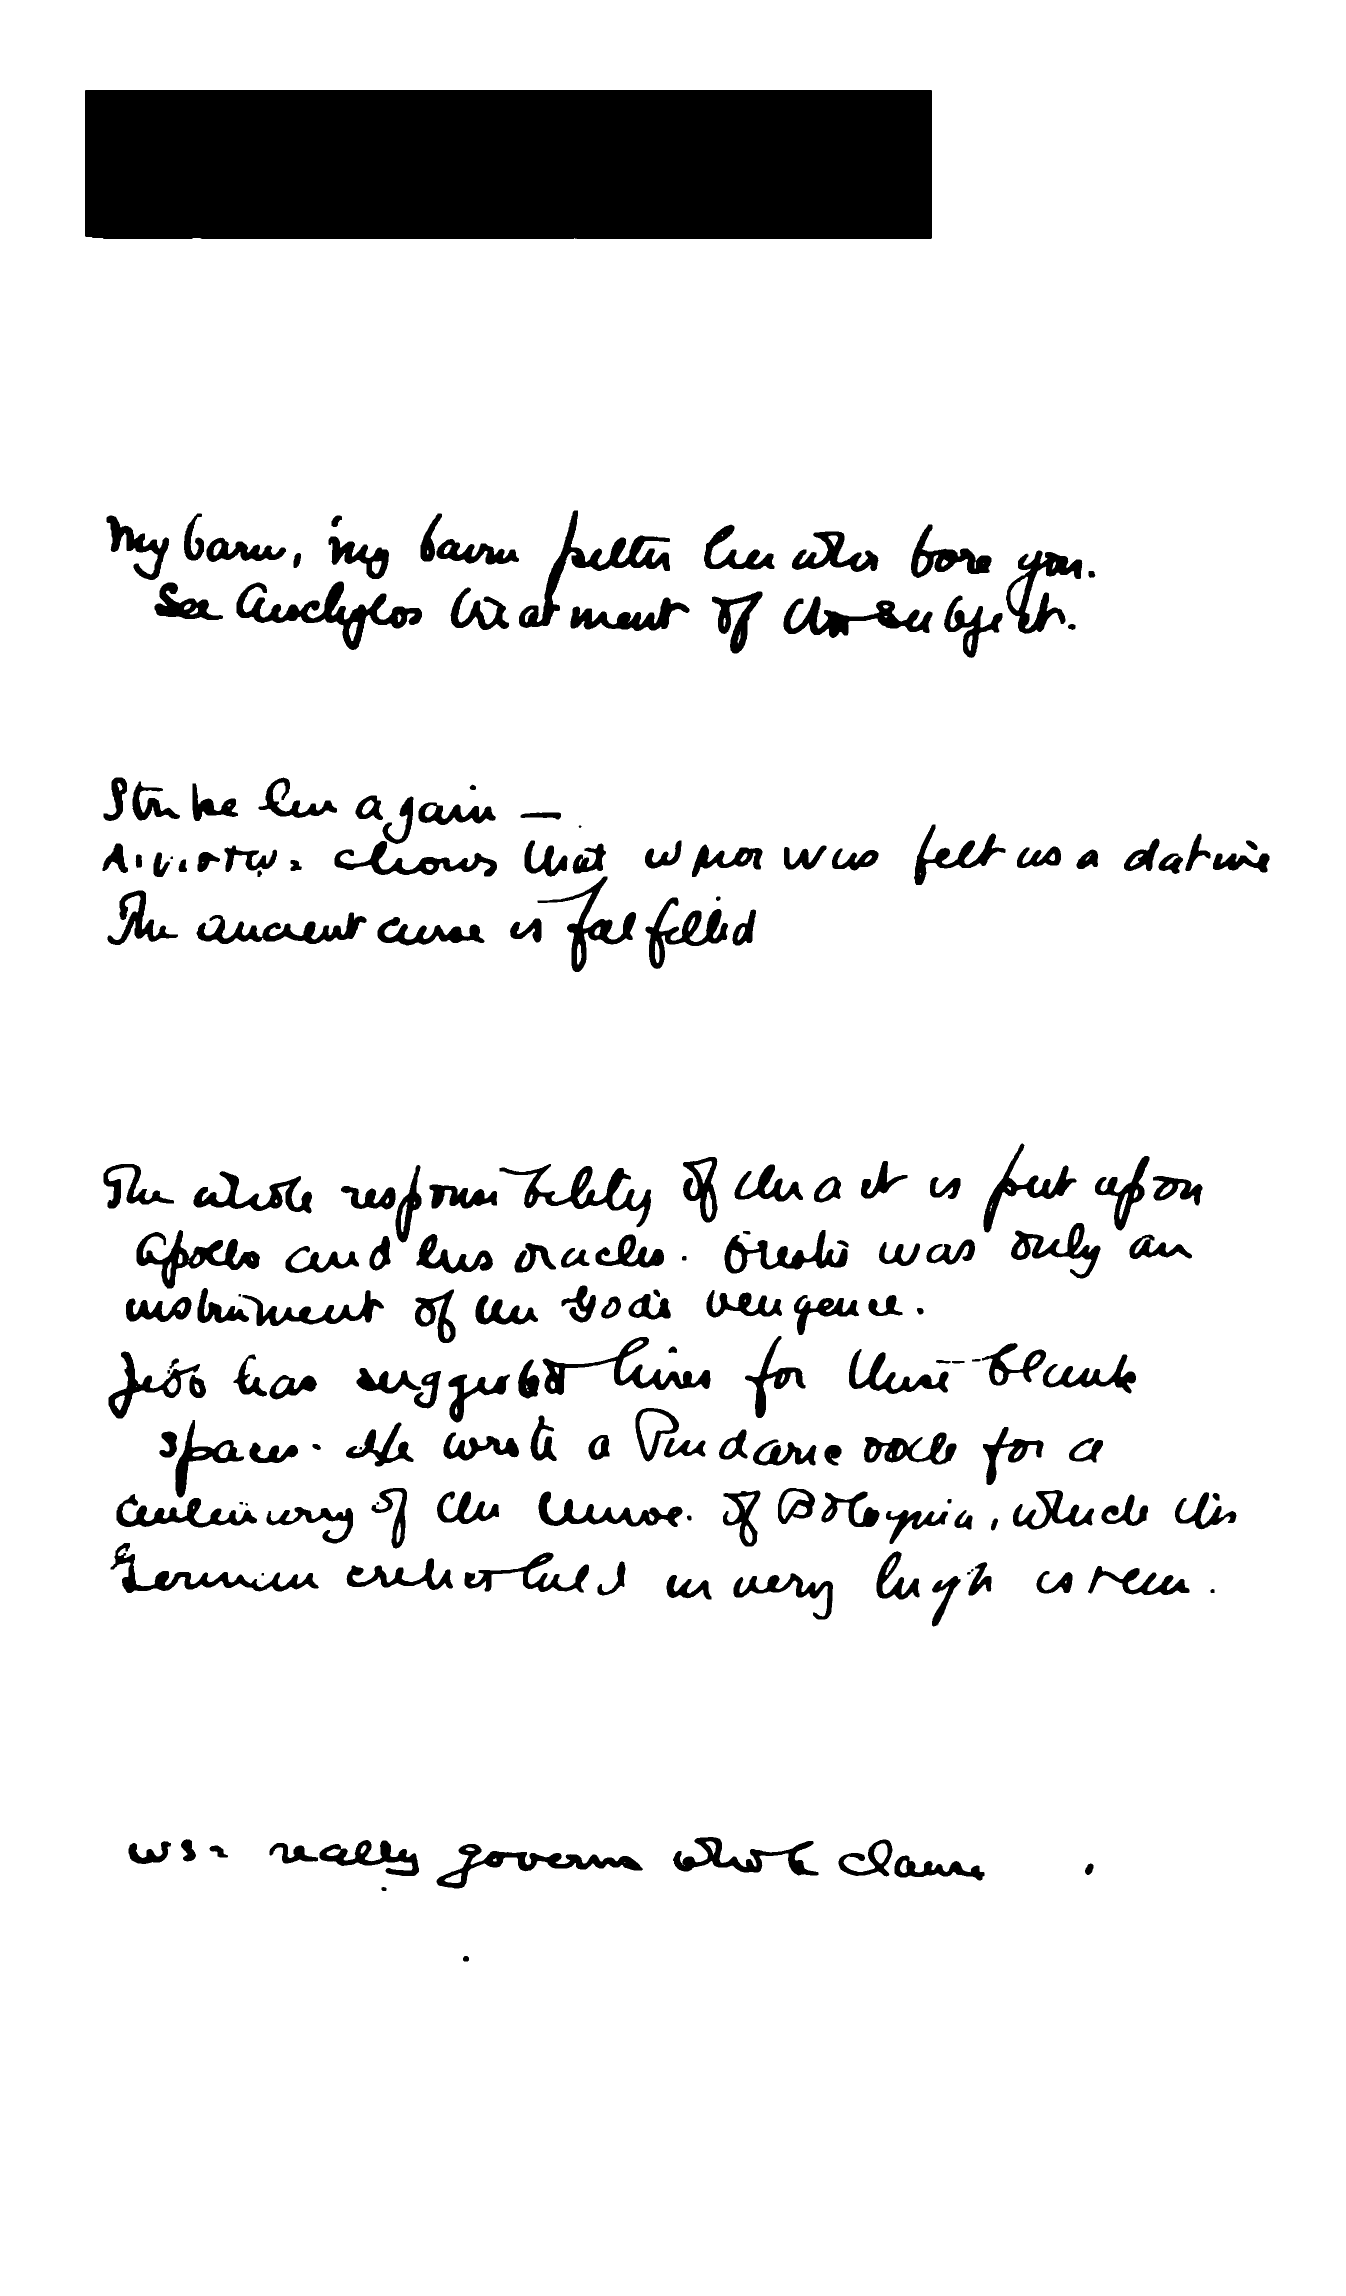 My barn, my bairn pitter her who bore you.
See Aeschylos treatment of the subject.
Strike her again —
shows that ωμοι was felt as a dative
The ancient curse is fulfilled
The whole responsibility of the act is put upon
Apollo and his oracles. Orestes was only an
instrument of the God's vengence.
Jebb has suggested lines for these blank
spaces. He wrote a Pindaric ode for a
centenary of the Univ. of Bolognia, which the
German critics hold in very high esteem.
ws = really governs whole clause